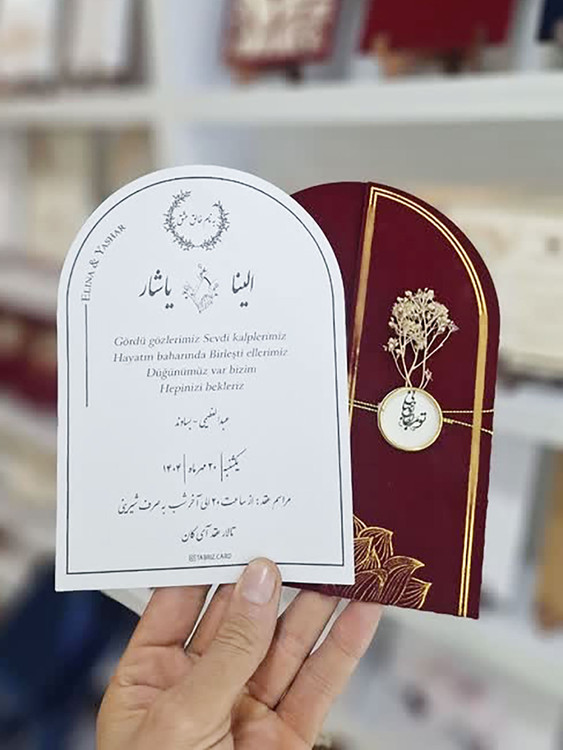 به نام خالق عشق
ELINA & YASHAR
الینا یاشار
Gördü gözlerimiz Sevdi kalplerimiz
Hayatın baharında Birleşti ellerimiz
Düğünümüz var bizim
Hepinizi bekleriz
عبدالعظیمی - بساوند
یکشنبه | ۲۰ مهر ماه | ۱۴۰۴
مراسم عقد: از ساعت ۲۰ الی آخر شب به صرف شیرینی
تالار عقد آی کان
TABRIZ.CARD